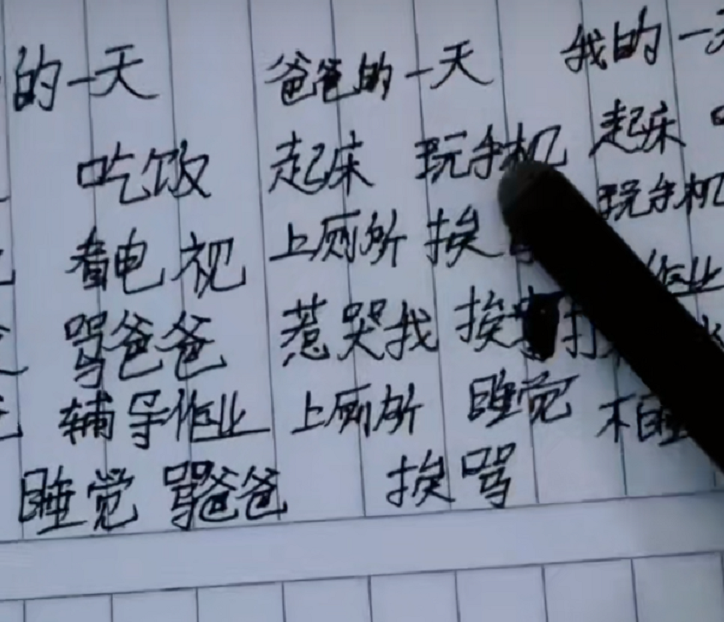 的一天 爸爸的一天 我的一天
吃饭 起床 玩手机 起床
看电视 上厕所 挨 玩手机
骂爸爸 惹哭我 挨 打 作业
辅导作业 上厕所 睡觉 不睡
睡觉 骂爸爸 挨骂